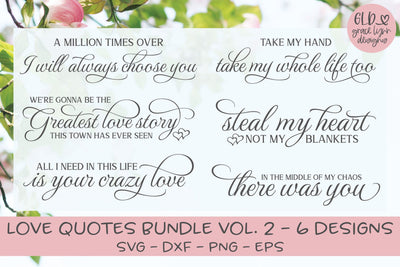 GLD
grace lynn
designs
A MILLION TIMES OVER
I will always choose you
TAKE MY HAND
take my whole life too
WE'RE GONNA BE THE
Greatest love story
THIS TOWN HAS EVER SEEN
steal my heart
NOT MY BLANKETS
ALL I NEED IN THIS LIFE
is your crazy love
IN THE MIDDLE OF MY CHAOS
there was you
LOVE QUOTES BUNDLE VOL. 2 – 6 DESIGNS
SVG – DXF – PNG – EPS